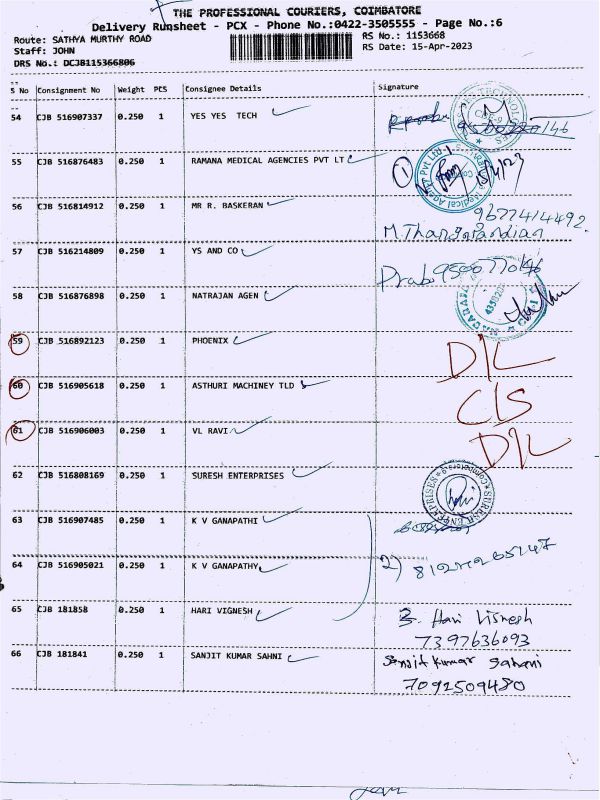 THE PROFESSIONAL COURIERS, COIMBATORE
Delivery Runsheet - PCX - Phone No.:0422-3505555 - Page No.:6
Route: SATHYA MURTHY ROAD
RS No.: 1153668
Staff: JOHN
RS Date: 15-Apr-2023
DRS No.: DCJB115366806
S No Consignment No Weight PCS Consignee Details Signature
54 CJB 516907337 0.250 1 YES YES TECH
55 CJB 516876483 0.250 1 RAMANA MEDICAL AGENCIES PVT LT 1 15/4/23
56 CJB 516814912 0.250 1 MR R. BASKERAN 9677414492
57 CJB 516214809 0.250 1 YS AND CO Prabu 9500770146
58 CJB 516876898 0.250 1 NATRAJAN AGEN
59 CJB 516892123 0.250 1 PHOENIX D/L
60 CJB 516905618 0.250 1 ASTHURI MACHINEY TLD C/S
61 CJB 516906003 0.250 1 VL RAVI D/L
62 CJB 516808169 0.250 1 SURESH ENTERPRISES SURESH ENTERPRISES
63 CJB 516907485 0.250 1 K V GANAPATHI
64 CJB 516905021 0.250 1 K V GANAPATHY 2)
65 CJB 181858 0.250 1 HARI VIGNESH Hari Vignesh
7397636093
66 CJB 181841 0.250 1 SANJIT KUMAR SAHNI Sanjit Kumar Sahani
7092509480